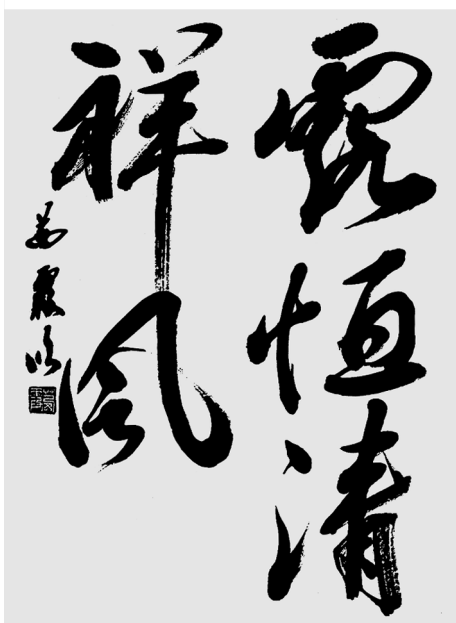 露恒清
祥風